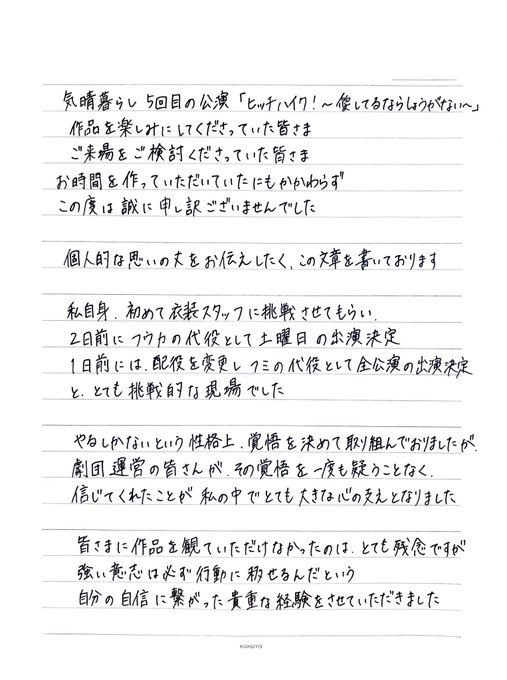 気晴暮らし 5回目の公演「ヒッチハイク!〜恋してるならしょうがない〜」
作品を楽しみにしてくださっていた皆さま
ご来場をご検討くださっていた皆さま
お時間を作っていただいていたにもかかわらず
この度は誠に申し訳ございませんでした
個人的な思いの丈をお伝えしたく、この文章を書いております
私自身、初めて衣装スタッフに挑戦させてもらい、
2日前にフウカの代役として土曜日の出演決定
1日前には、配役を変更しフミの代役として全公演の出演決定
と、とても挑戦的な現場でした
やるしかないという性格上、覚悟を決めて取り組んでおりましたが、
劇団運営の皆さんが、その覚悟を一度も疑うことなく、
信じてくれたことが私の中でとても大きな心の支えとなりました
皆さまに作品を観ていただけなかったのは、とても残念ですが
強い意志は必ず行動に移せるんだという
自分の自信に繋がった貴重な経験をさせていただきました
KOKUYO